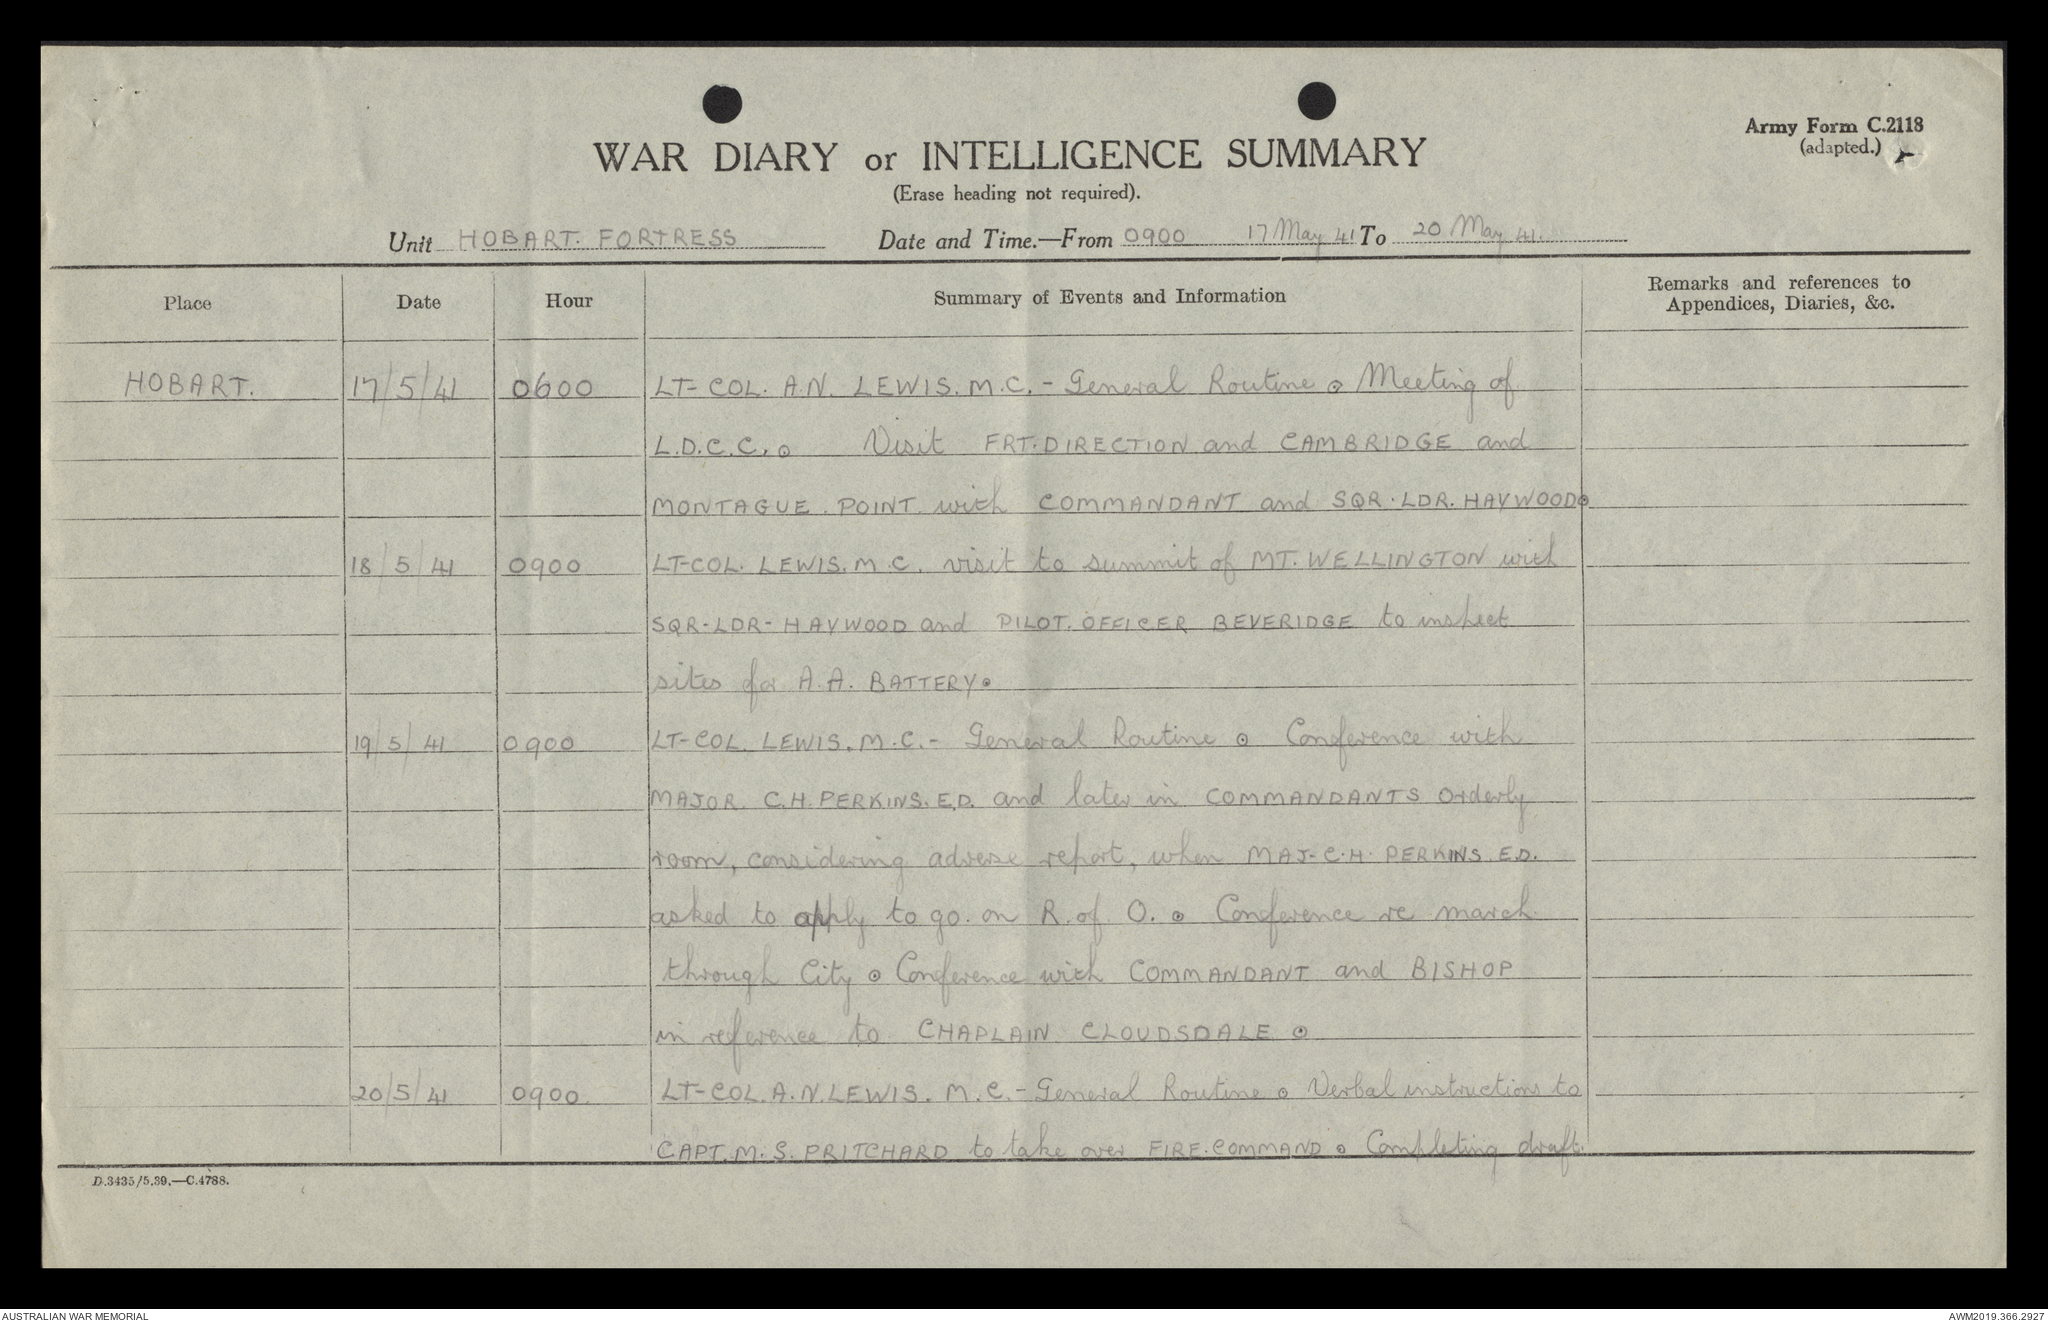 Army Form C.2118
(adapted.)
WAR DIARY or INTELLIGENCE SUMMARY
(Erase heading not required).
Unit HOBART. FORTRESS Date and Time.—From 0900 17 May 41 To 20 May 41.
Place Date Hour Summary of Events and Information Remarks and references to Appendices, Diaries, &c.
HOBART. 17/5/41 0600 LT-COL. A.N. LEWIS. M.C. - General Routine ⊙ Meeting of
L.D.C.C. ⊙ Visit FRT. DIRECTION and CAMBRIDGE and
MONTAGUE POINT with COMMANDANT and SQR. LDR. HAYWOOD⊙
18/5/41 0900 LT-COL. LEWIS. M.C. visit to summit of MT. WELLINGTON with
SQR-LDR-HAYWOOD and PILOT. OFFICER BEVERIDGE to inspect
sites for A.A. BATTERY⊙
19/5/41 0900 LT-COL. LEWIS. M.C. - General Routine ⊙ Conference with
MAJOR. C.H. PERKINS. E.D. and later in COMMANDANTS Orderly
room, considering adverse report, when MAJ-C.H. PERKINS E.D.
asked to apply to go on R. of O. ⊙ Conference re march
through City ⊙ Conference with COMMANDANT and BISHOP
in reference to CHAPLAIN CLOUDSDALE ⊙
20/5/41 0900 LT-COL. A.N. LEWIS. M.C. - General Routine ⊙ Verbal instructions to
CAPT. M.S. PRITCHARD to take over FIRE. COMMAND ⊙ Completing draft.
D.3435/5.39.—C.4788.
AUSTRALIAN WAR MEMORIAL AWM2019.366.2927